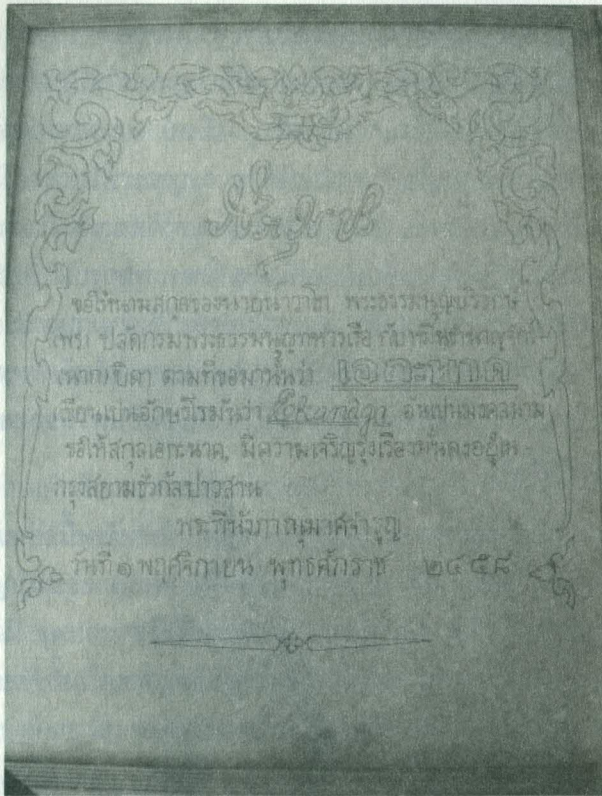 ขอให้นามสกุลของนายนาวาโท พระธรรมนูญ
ปลัดกรมพระธรรมนูญทหารเรือ กับ
บิดา ตามที่ขอมานั้นว่า เอกะนาค
เขียนเป็นอักษรโรมันว่า Ekanâga อันเป็นมงคลนาม
ขอให้สกุลเอกะนาค, มีความเจริญรุ่งเรืองมั่นคงอยู่ใน
กรุงสยามชั่วกัลปาวสาน
พระที่นั่งภาณุมาศจำรูญ
วันที่ ๑ พฤศจิกายน พุทธศักราช ๒๔๕๘